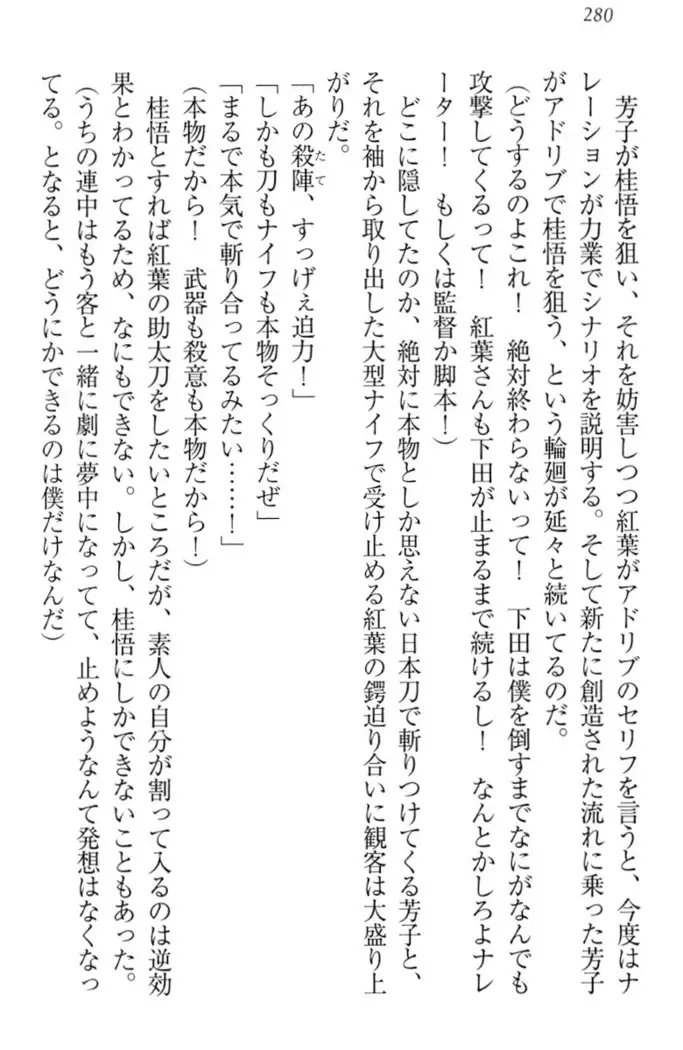 280
　芳子が桂悟を狙い、それを妨害しつつ紅葉がアドリブのセリフを言うと、今度はナ
レーションが力業でシナリオを説明する。そして新たに創造された流れに乗った芳子
がアドリブで桂悟を狙う、という輪廻が延々と続いてるのだ。
（どうするのよこれ！　絶対終わらないって！　下田は僕を倒すまでなにがなんでも
攻撃してくるって！　紅葉さんも下田が止まるまで続けるし！　なんとかしろよナレ
ーター！　もしくは監督か脚本！）
　どこに隠してたのか、絶対に本物としか思えない日本刀で斬りつけてくる芳子と、
それを袖から取り出した大型ナイフで受け止める紅葉の鍔迫り合いに観客は大盛り上
がりだ。
「あの殺陣、すっげぇ迫力！」
「しかも刀もナイフも本物そっくりだぜ」
「まるで本気で斬り合ってるみたい……！」
（本物だから！　武器も殺意も本物だから！）
　桂悟とすれば紅葉の助太刀をしたいところだが、素人の自分が割って入るのは逆効
果とわかってるため、なにもできない。しかし、桂悟にしかできないこともあった。
（うちの連中はもう客と一緒に劇に夢中になってて、止めようなんて発想はなくなっ
てる。となると、どうにかできるのは僕だけなんだ）